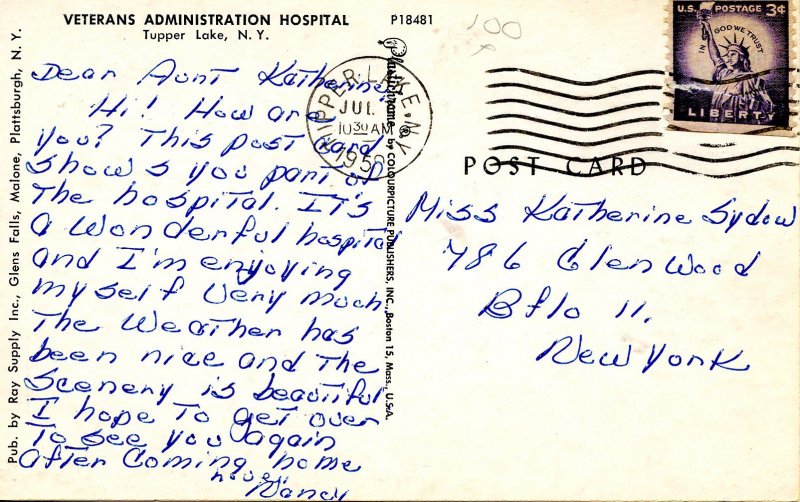 VETERANS ADMINISTRATION HOSPITAL
Tupper Lake, N. Y.
P18481
100
U.S. POSTAGE 3¢
IN GOD WE TRUST
LIBERTY
TUPPER LAKE, N.Y.
JUL
1030 AM
Plastichrome by COLOURPICTURE PUBLISHERS, INC., Boston 15, Mass., U.S.A.
Pub. by Ray Supply Inc., Glens Falls, Malone, Plattsburgh, N. Y.
POST CARD
Dear Aunt Katherine
Hi! How are
you? This post card
shows you part of
The hospital. IT's
a wonderful hospital
and I'm enjoying
myself very much
The Weather has
been nice and The
Scenery is beautiful
I hope To get over
To see you again
after coming home
Nancy
Miss Katherine Sydow
786 Glenwood
Bflo 11.
New York